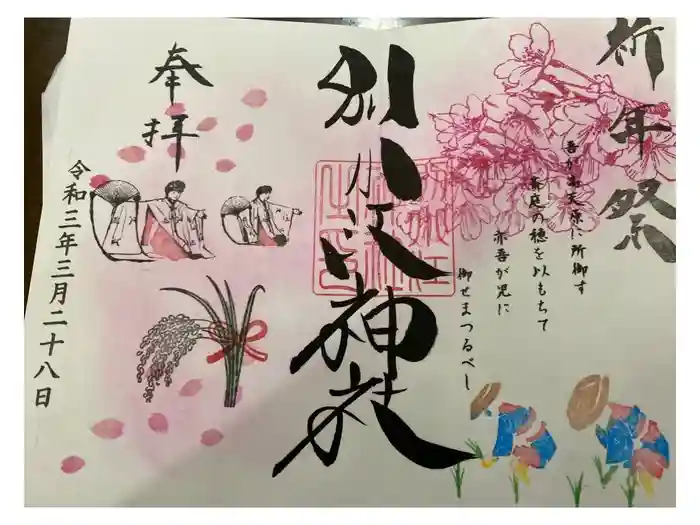 祈年祭
吾が高天原に所御す
斎庭の穂を以もちて
亦吾が児に
御せまつるべし
別小江神社
奉拝
令和三年三月二十八日